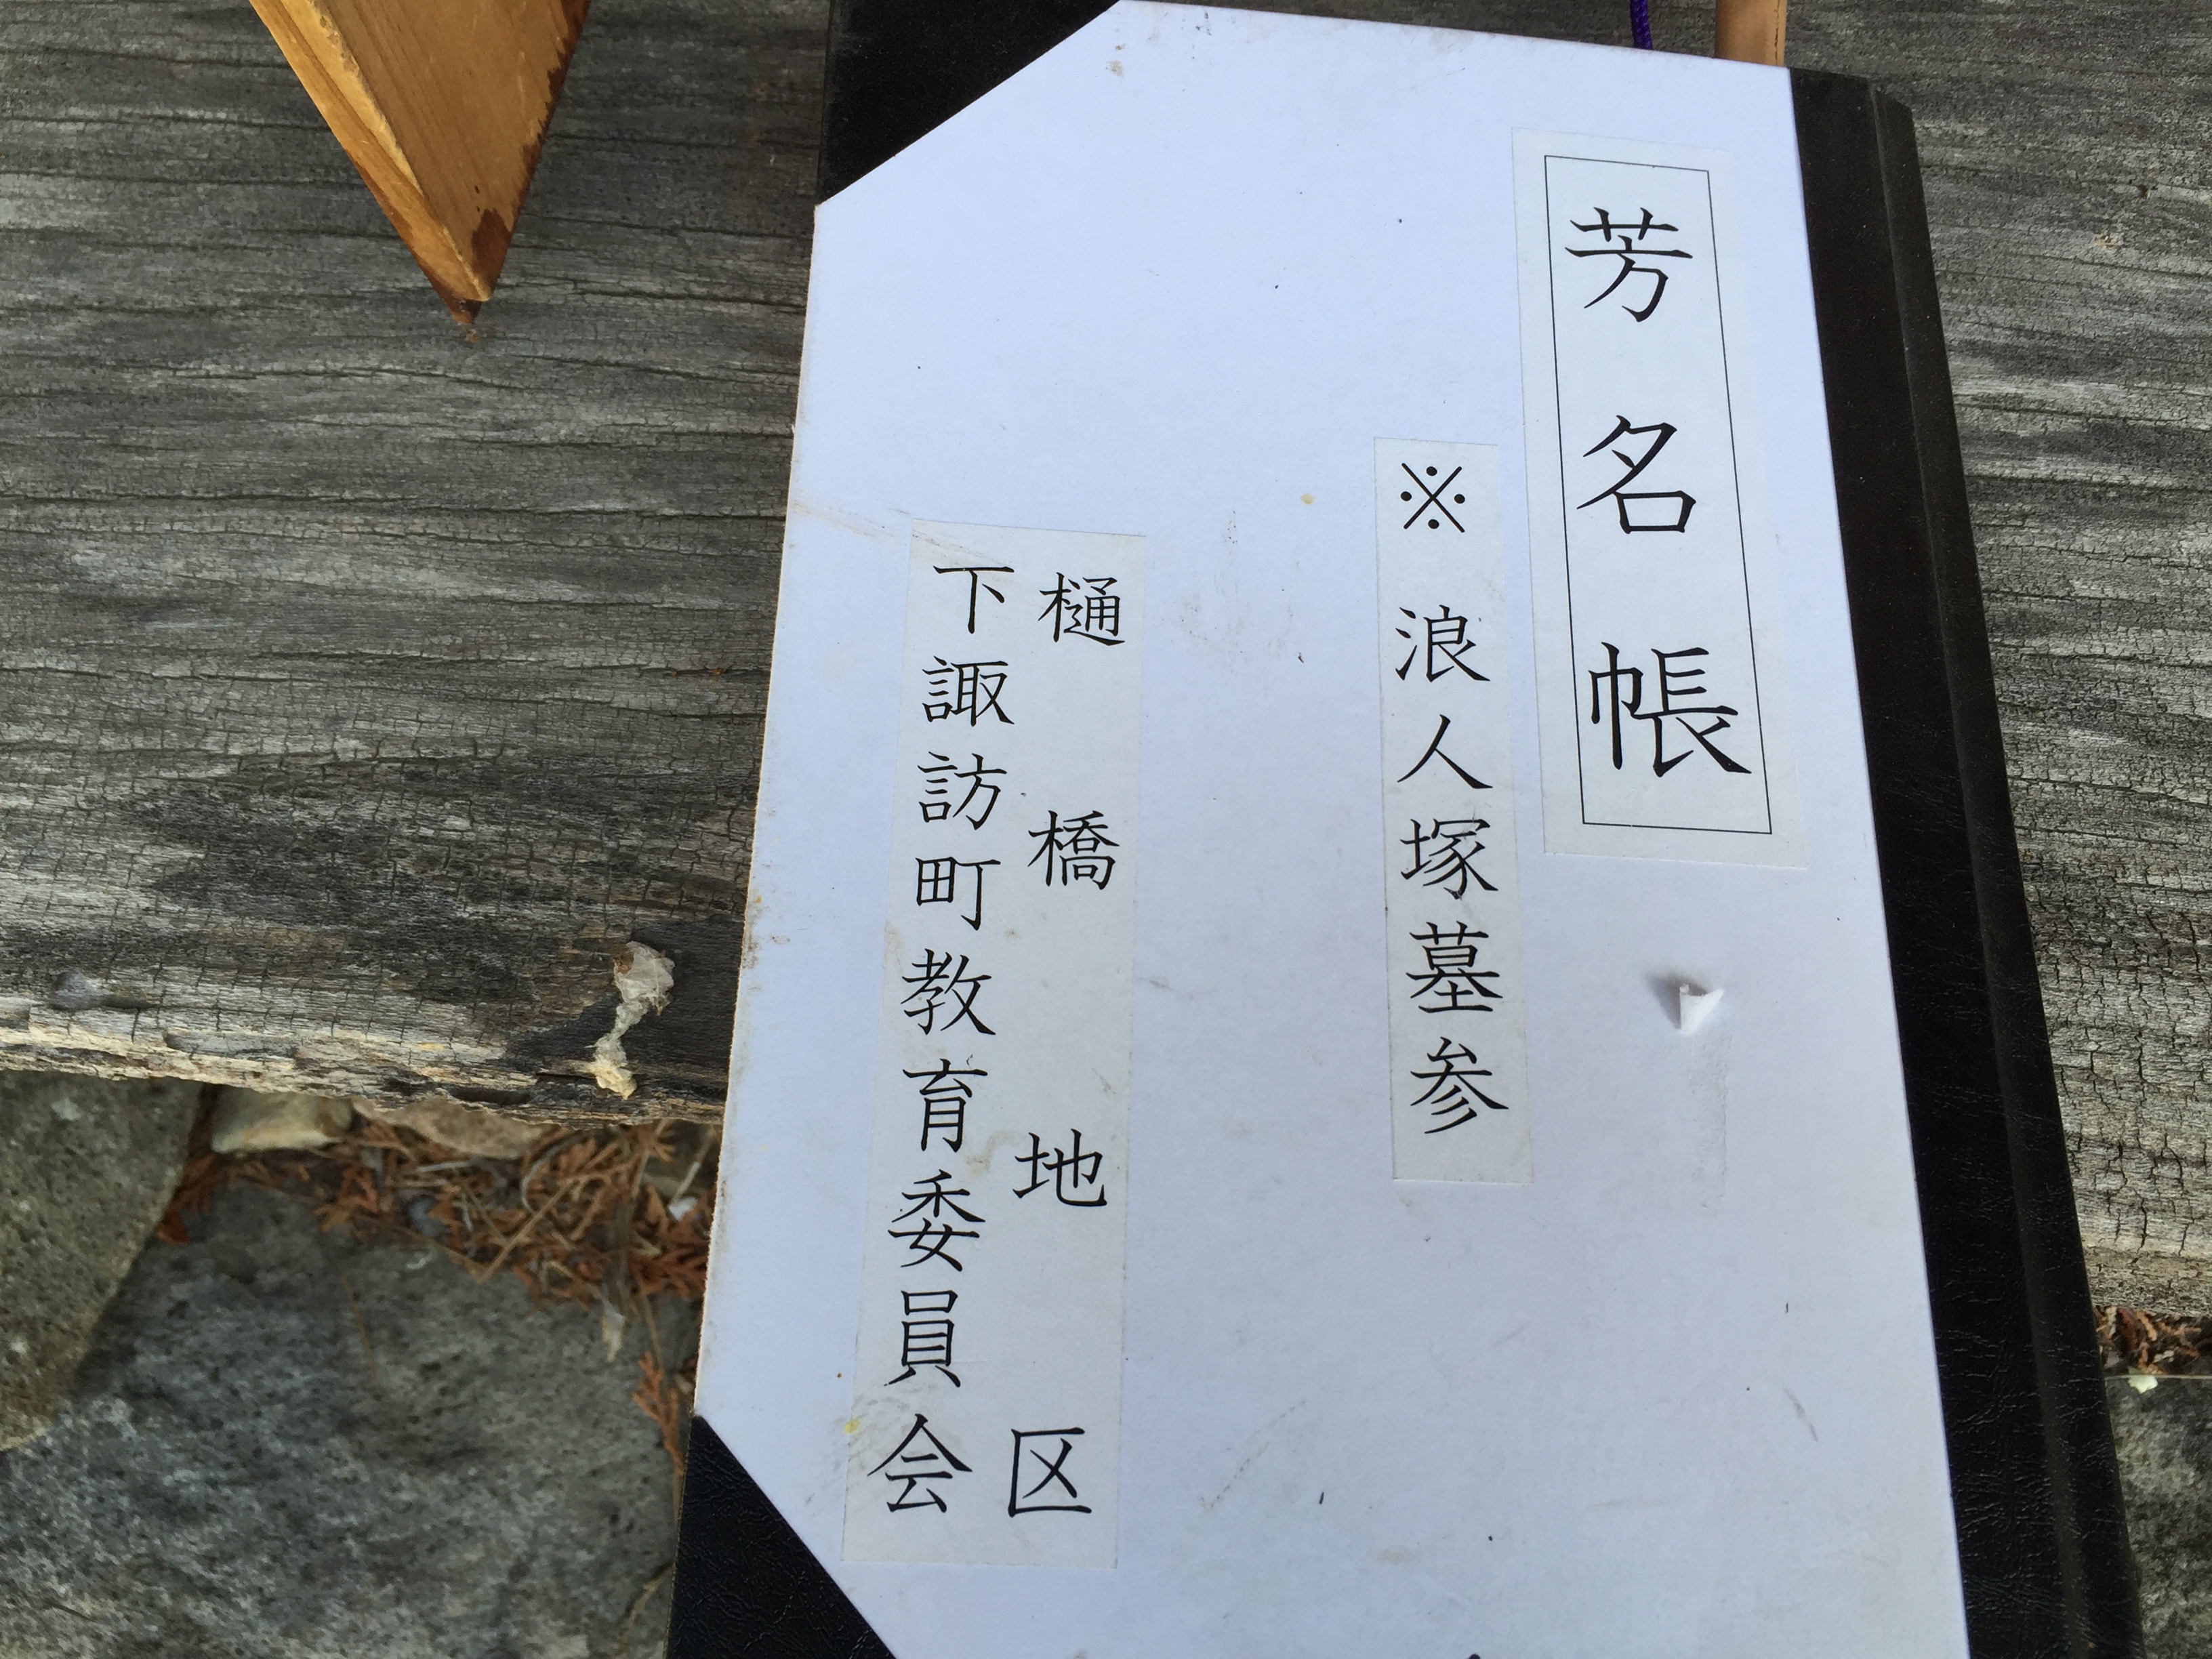 芳名帳
※ 浪人塚墓参
樋橋地区
下諏訪町教育委員会